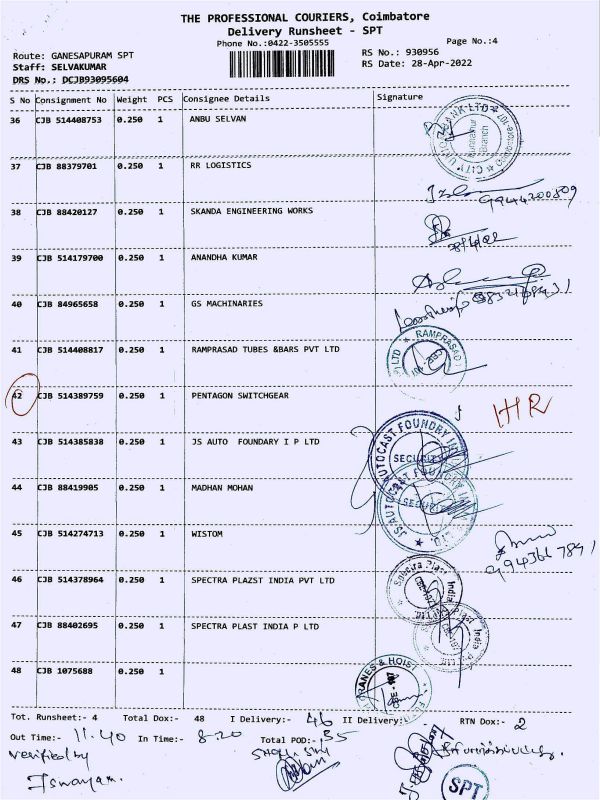 THE PROFESSIONAL COURIERS, Coimbatore
Delivery Runsheet - SPT
Phone No.:0422-3505555
Page No.:4
Route: GANESAPURAM SPT
RS No.: 930956
Staff: SELVAKUMAR
RS Date: 28-Apr-2022
DRS No.: DCJB93095604
S No Consignment No Weight PCS Consignee Details Signature
36 CJB 514408753 0.250 1 ANBU SELVAN
37 CJB 88379701 0.250 1 RR LOGISTICS
38 CJB 88420127 0.250 1 SKANDA ENGINEERING WORKS
39 CJB 514179700 0.250 1 ANANDHA KUMAR
40 CJB 84965658 0.250 1 GS MACHINARIES
41 CJB 514408817 0.250 1 RAMPRASAD TUBES &BARS PVT LTD
RAMPRASAD
42 CJB 514389759 0.250 1 PENTAGON SWITCHGEAR
43 CJB 514385838 0.250 1 JS AUTO FOUNDARY I P LTD
AUTOCAST FOUNDRY
SECURITY
44 CJB 88419905 0.250 1 MADHAN MOHAN
JS AUTOCAST FOUNDRY
SECURITY
45 CJB 514274713 0.250 1 WISTOM
46 CJB 514378964 0.250 1 SPECTRA PLAZST INDIA PVT LTD
Spectra Plast India
47 CJB 88402695 0.250 1 SPECTRA PLAST INDIA P LTD
48 CJB 1075688 0.250 1
CRANES & HOIST
Tot. Runsheet:- 4 Total Dox:- 48 I Delivery:- 46 II Delivery: RTN Dox:- 2
Out Time:- 11.40 In Time:- 8-20 Total POD:- 35
Verified by
SPT